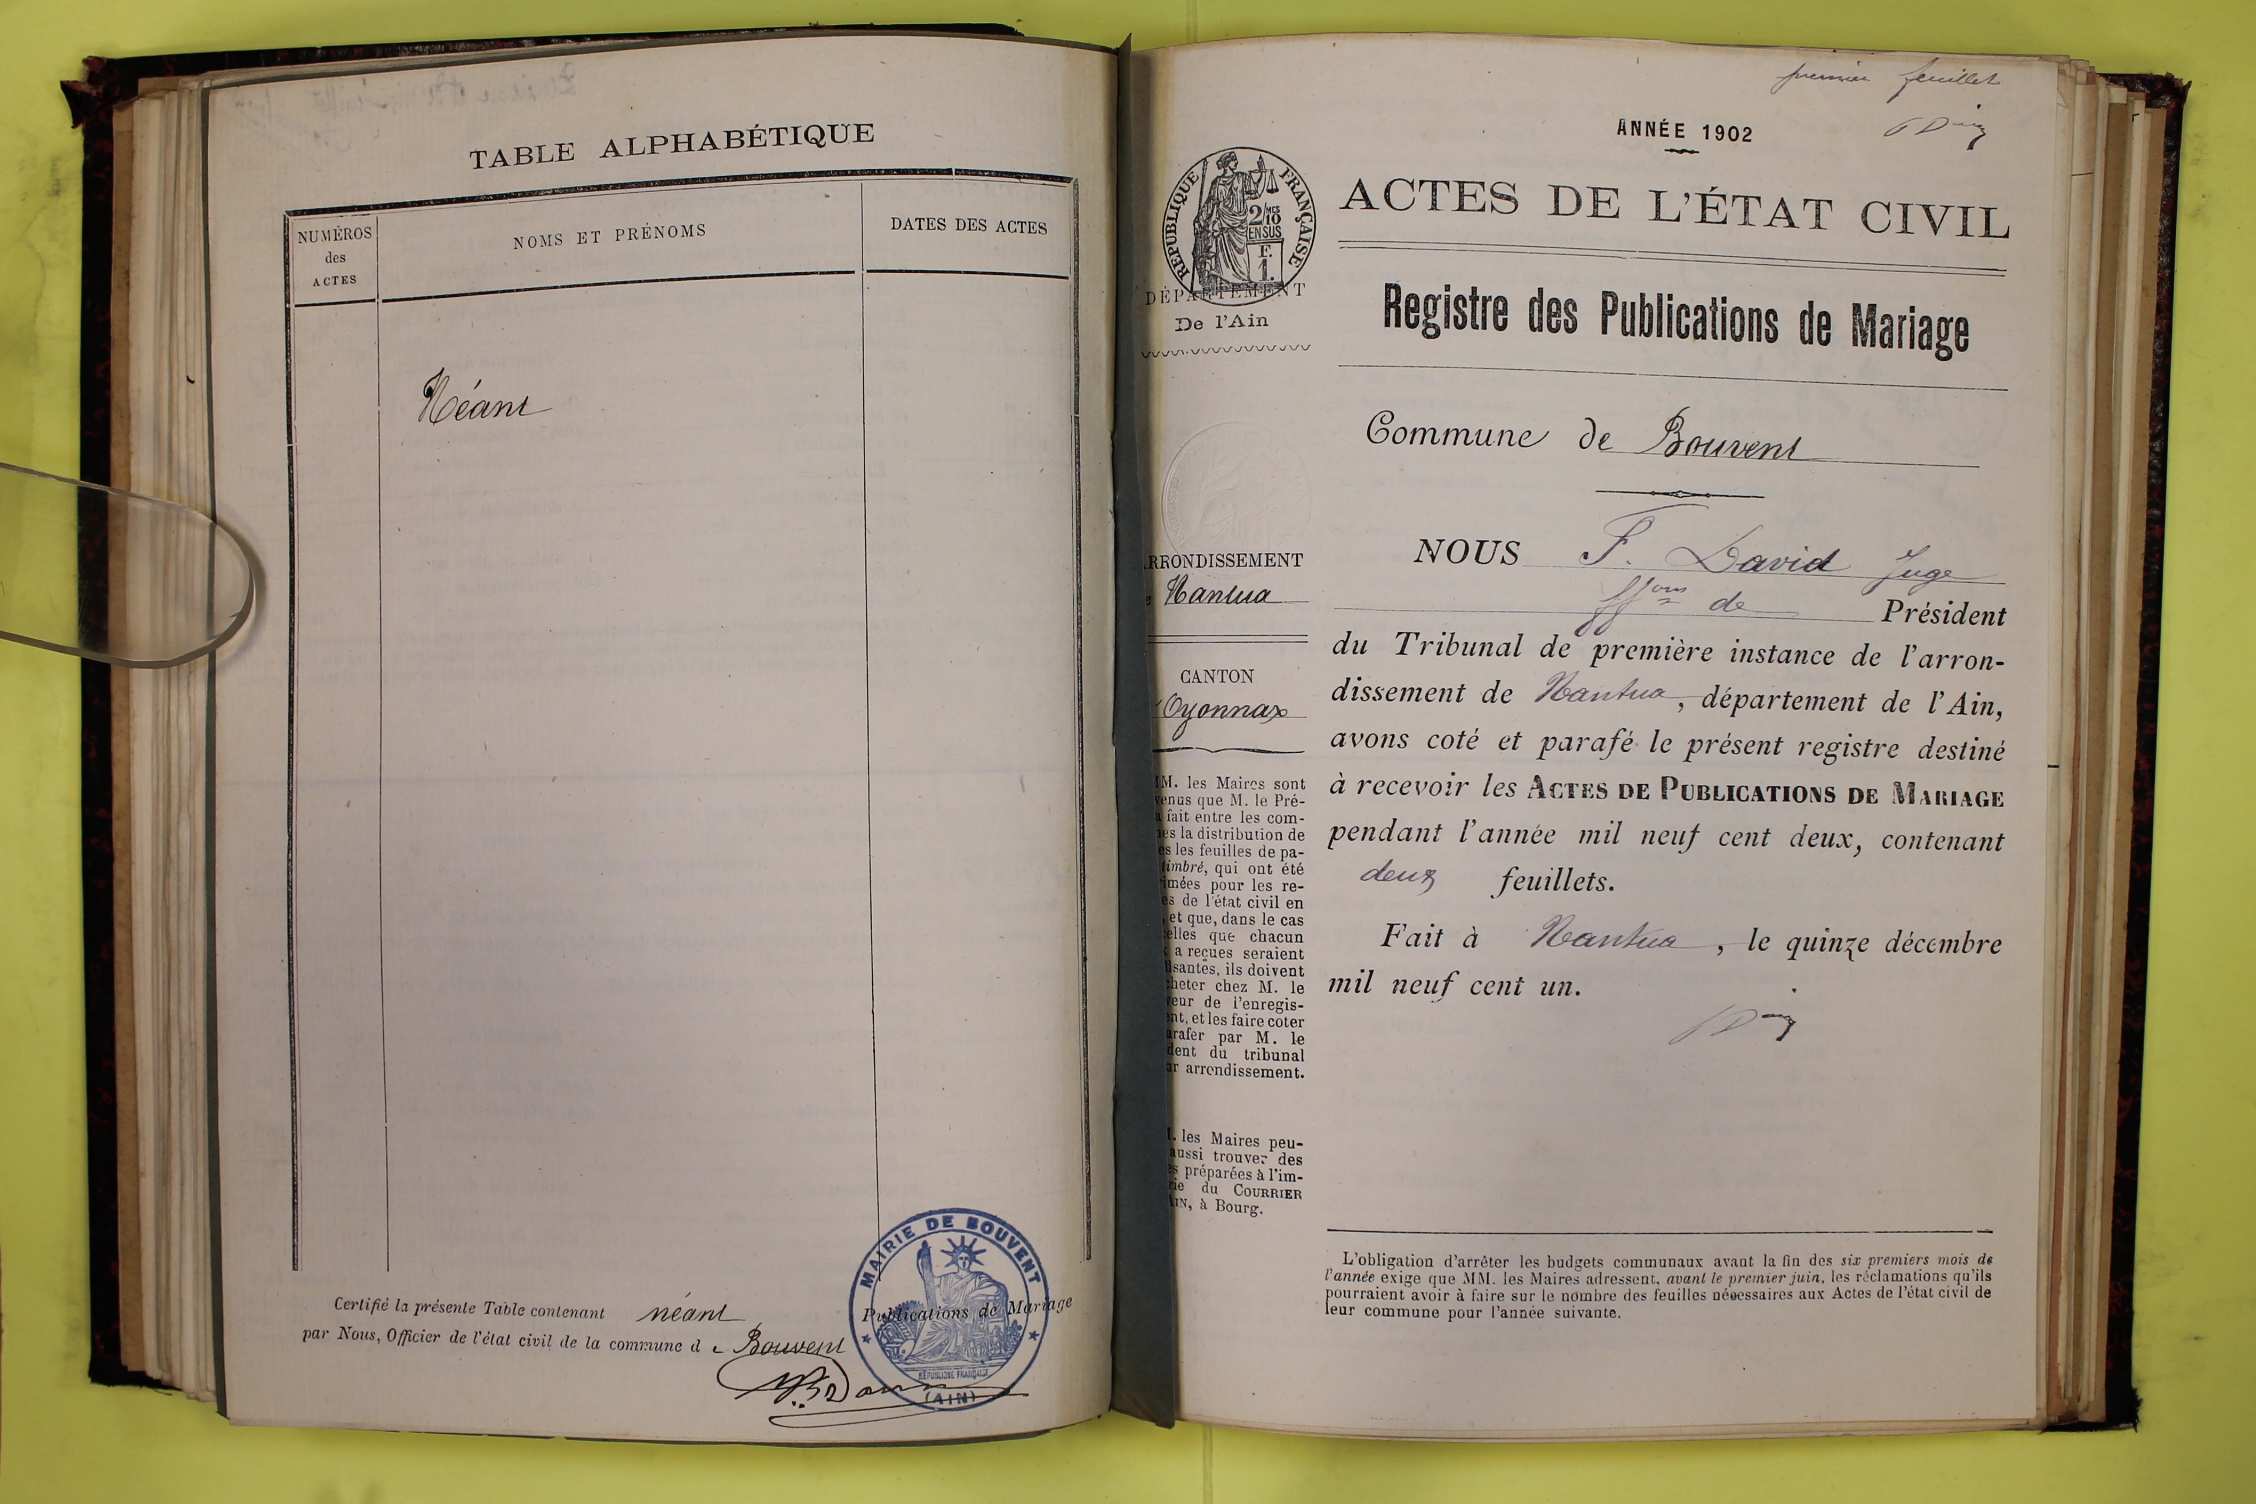 TABLE ALPHABÉTIQUE
NUMÉROS
des
ACTES
NOMS ET PRÉNOMS
DATES DES ACTES
Néant
Certifié la présente Table contenant néant Publications de Mariage
par Nous, Officier de l'état civil de la commune de Bouvent
MAIRIE DE BOUVENT
RÉPUBLIQUE FRANÇAISE
(AIN)
premier feuillet
ANNÉE 1902
RÉPUBLIQUE FRANÇAISE
2/10 MES
EN SUS
F.
1.
ACTES DE L'ÉTAT CIVIL
DÉPARTEMENT
De l'Ain
Registre des Publications de Mariage
Commune de Bouvent
ARRONDISSEMENT
Nantua
CANTON
Oyonnax
MM. les Maires sont
venus que M. le Pré-
a fait entre les com-
nes la distribution de
es les feuilles de pa-
timbré, qui ont été
imées pour les re-
es de l'état civil en
, et que, dans le cas
celles que chacun
x a reçues seraient
isantes, ils doivent
cheter chez M. le
veur de l'enregis-
ent, et les faire coter
arafer par M. le
dent du tribunal
ur arrondissement.
M. les Maires peu-
aussi trouver des
es préparées à l'im-
rie du COURRIER
AIN, à Bourg.
NOUS F. David Juge
ffons de Président
du Tribunal de première instance de l'arron-
dissement de Nantua, département de l'Ain,
avons coté et parafé le présent registre destiné
à recevoir les ACTES DE PUBLICATIONS DE MARIAGE
pendant l'année mil neuf cent deux, contenant
deux feuillets.
Fait à Nantua, le quinze décembre
mil neuf cent un.
L'obligation d'arrêter les budgets communaux avant la fin des six premiers mois de
l'année exige que MM. les Maires adressent, avant le premier juin, les réclamations qu'ils
pourraient avoir à faire sur le nombre des feuilles nécessaires aux Actes de l'état civil de
leur commune pour l'année suivante.